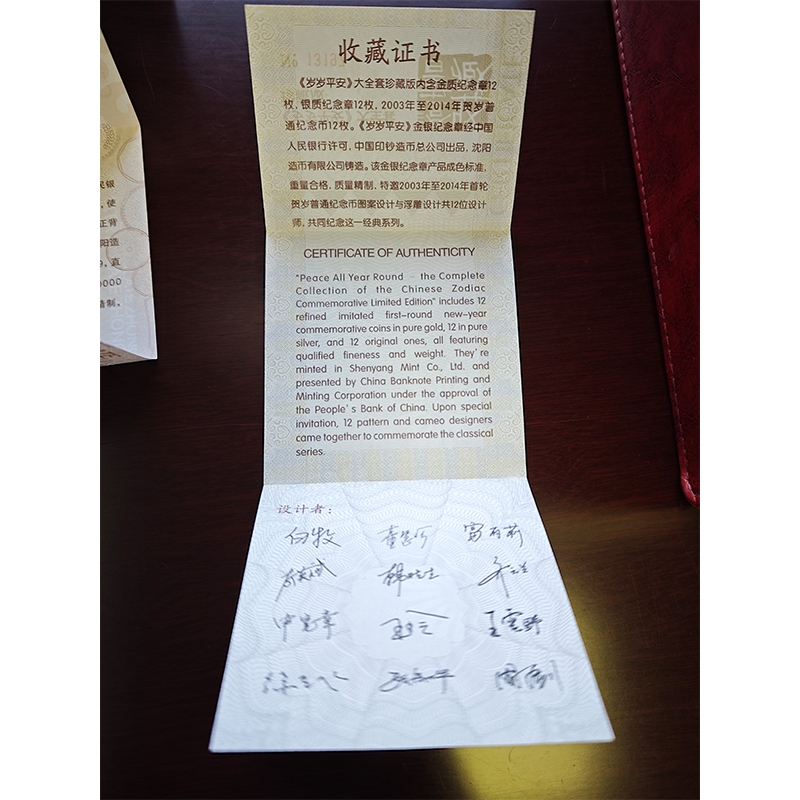 收藏证书
《岁岁平安》大全套珍藏版内含金质纪念章12
枚，银质纪念章12枚，2003年至2014年贺岁普
通纪念币12枚。《岁岁平安》金银纪念章经中国
人民银行许可，中国印钞造币总公司出品，沈阳
造币有限公司铸造。该金银纪念章产品成色标准，
重量合格，质量精制，特邀2003年至2014年首轮
贺岁普通纪念币图案设计与浮雕设计共12位设计
师，共同纪念这一经典系列。
CERTIFICATE OF AUTHENTICITY
"Peace All Year Round – the Complete
Collection of the Chinese Zodiac
Commemorative Limited Edition" includes 12
refined imitated first-round new-year
commemorative coins in pure gold, 12 in pure
silver, and 12 original ones, all featuring
qualified fineness and weight. They're
minted in Shenyang Mint Co., Ltd. and
presented by China Banknote Printing and
Minting Corporation under the approval of
the People's Bank of China. Upon special
invitation, 12 pattern and cameo designers
came together to commemorate the classical
series.
设计者：
民银
使
正背
阳造
直
0000
精制。